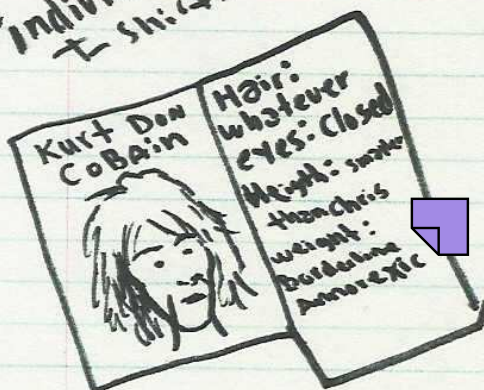 + shirt
Kurt Don
Cobain
Hair:
whatever
eyes: Closed
Heigth: smaller
than Chris
weight:
borderline
Annorexic